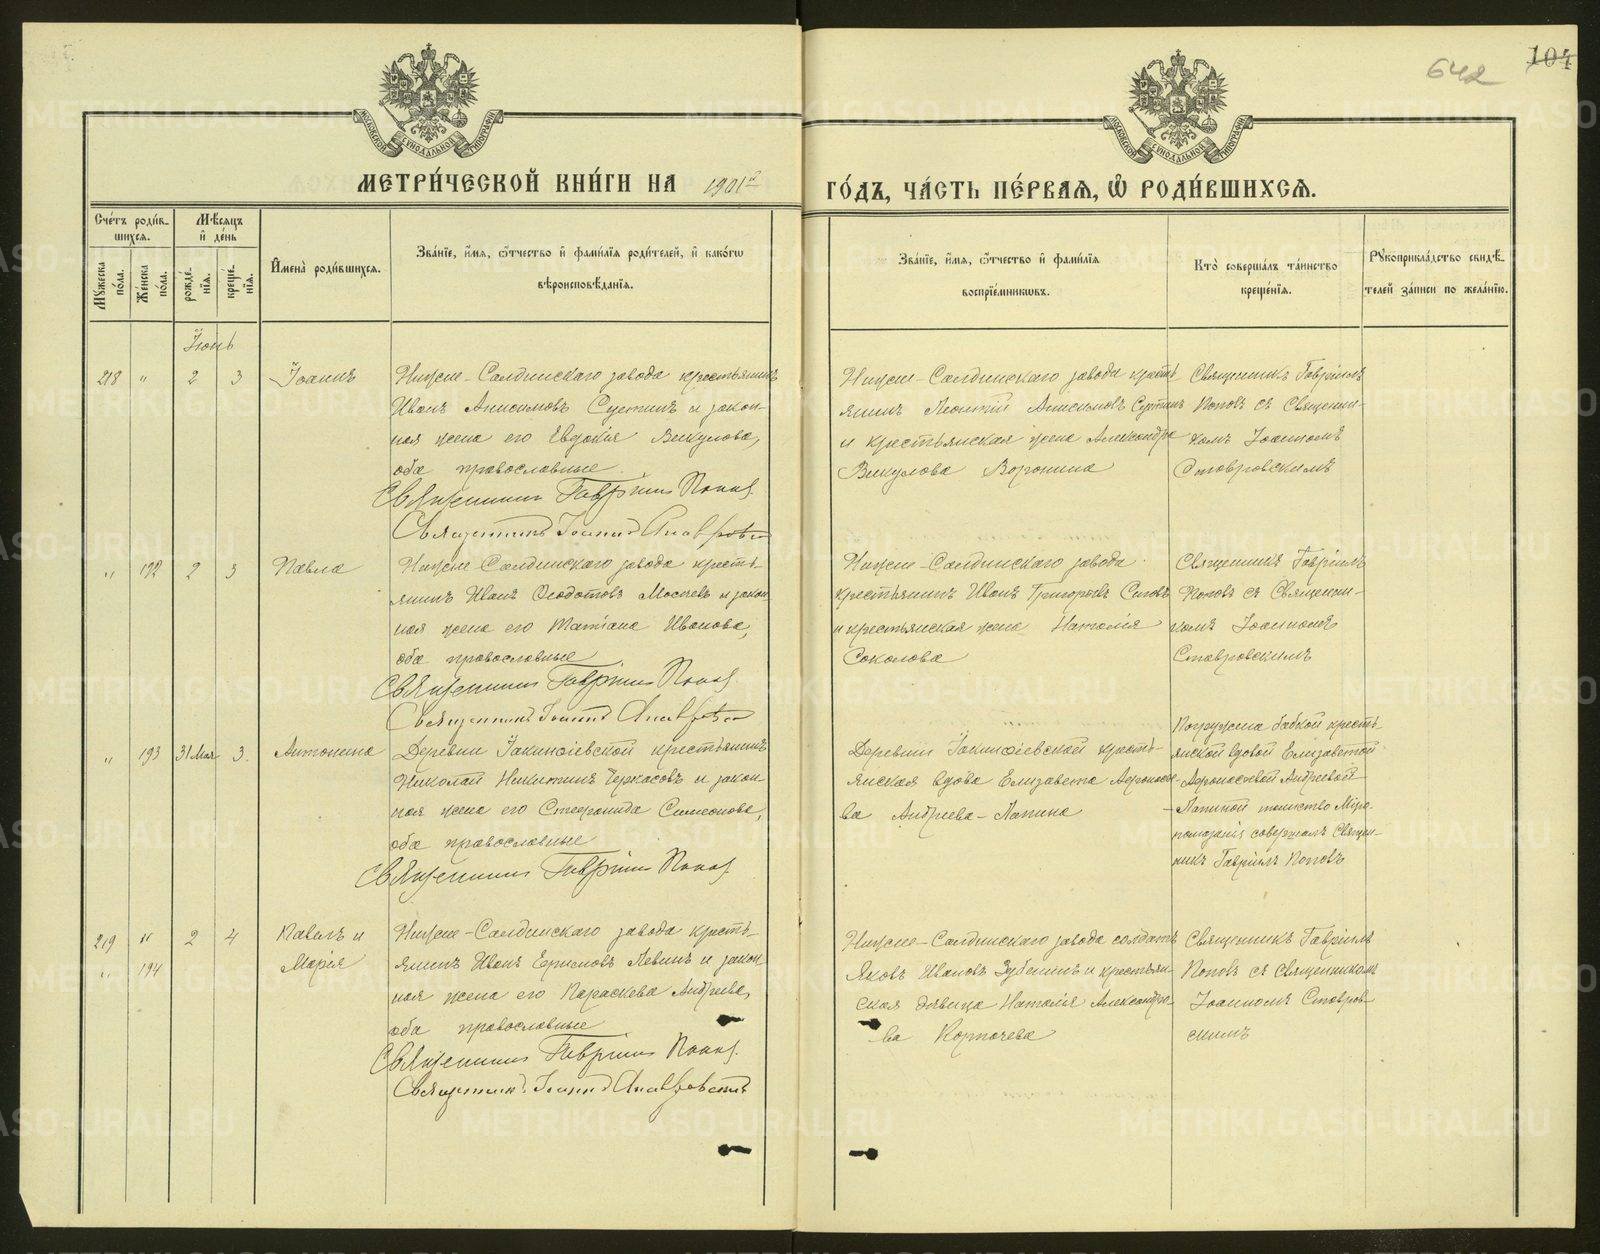 642
104
МОСКОВСКОЙ СѴНОДАЛЬНОЙ ТИПОГРАФІИ
МОСКОВСКОЙ СѴНОДАЛЬНОЙ ТИПОГРАФІИ
МЕТРИ́ЧЕСКОЙ КНИ́ГИ НА 1901й
ГО́ДЪ, ЧА́СТЬ ПЕ́РВАѦ, Ѡ҆ РОДИ́ВШИХСѦ.
Сче́тъ роди́в-
шихсѧ.
Мꙋжеска по́ла.
Же́нска по́ла.
Мѣ́сяцъ
и҆ де́нь
рожде́-
нїѧ.
креще́-
нїѧ.
И҆мена̀ роди́вшихсѧ.
Зва́нїе, и҆́мѧ, ѻ҆́тчество и҆ фами́лїѧ роди́телей, и҆ како́гѡ
вѣроисповѣ́данїѧ.
Зва́нїе, и҆́мѧ, ѻ҆́тчество и҆ фами́лїѧ
воспрїе́мникѡвъ.
Кто̀ соверша́лъ та́инство
креще́нїѧ.
Рꙋкоприкла́дство свидѣ́-
телей за́писи по жела́нїю.
Іюнь
218 " 2 3 Іоаннъ
Нижне-Салдинскаго завода крестьянинъ
Иванъ Анисимовъ Сустинъ и закон-
ная жена его Евдокія Викулова,
оба православные
Священникъ Гавріилъ Поповъ
Священникъ Іоаннъ Ставровскій
Нижне-Салдинскаго завода кресть-
янинъ Леонтій Анисимовъ Сустинъ
и крестьянская жена Александра
Викулова Воронина
Священникъ Гавріилъ
Поповъ съ Священни-
комъ Іоанномъ
Ставровскимъ
" 192 2 3 Павла
Нижне-Салдинскаго завода кресть-
янинъ Иванъ Ѳеодотовъ Мосеевъ и закон-
ная жена его Татіана Иванова,
оба православные
Священникъ Гавріилъ Поповъ
Священникъ Іоаннъ Ставровскій
Нижне-Салдинскаго завода
крестьянинъ Иванъ Григорьевъ
и крестьянская жена Наталія
Соколова
Священникъ Гавріилъ
Поповъ съ Священни-
комъ Іоанномъ
Ставровскимъ
" 193 31 Мая 3. Антонина
Деревни Іакинѳіевской крестьянинъ
Николай Никитинъ Черкасовъ и закон-
ная жена его Стефанида Симеонова,
оба православные
Священникъ Гавріилъ Поповъ
Деревни Іакинѳіевской кресть-
янская вдова Елизавета Аѳонасье-
ва Андреева-Лапина
Погружена бабкой кресть-
янской вдовой Елизаветой
Аѳонасьевой Андреевой
-Лапиной таинство Міро-
помазанія совершалъ Священ-
никъ Гавріилъ Поповъ
219 " 2 4 Павелъ и
" 194 Марія
Нижне-Салдинскаго завода кресть-
янинъ Иванъ Ермиловъ Левинъ и закон-
ная жена его Параскева Андреева,
оба православные
Священникъ Гавріилъ Поповъ
Священникъ Іоаннъ Ставровскій
Нижне-Салдинскаго завода солдатъ
Яковъ Ивановъ Зубенинъ и крестьян-
ская дѣвица Наталія Александро-
ва Корпачева
Священникъ Гавріилъ
Поповъ съ Священникомъ
Іоанномъ Ставров-
скимъ
METRIKI.GASO-URAL.RU